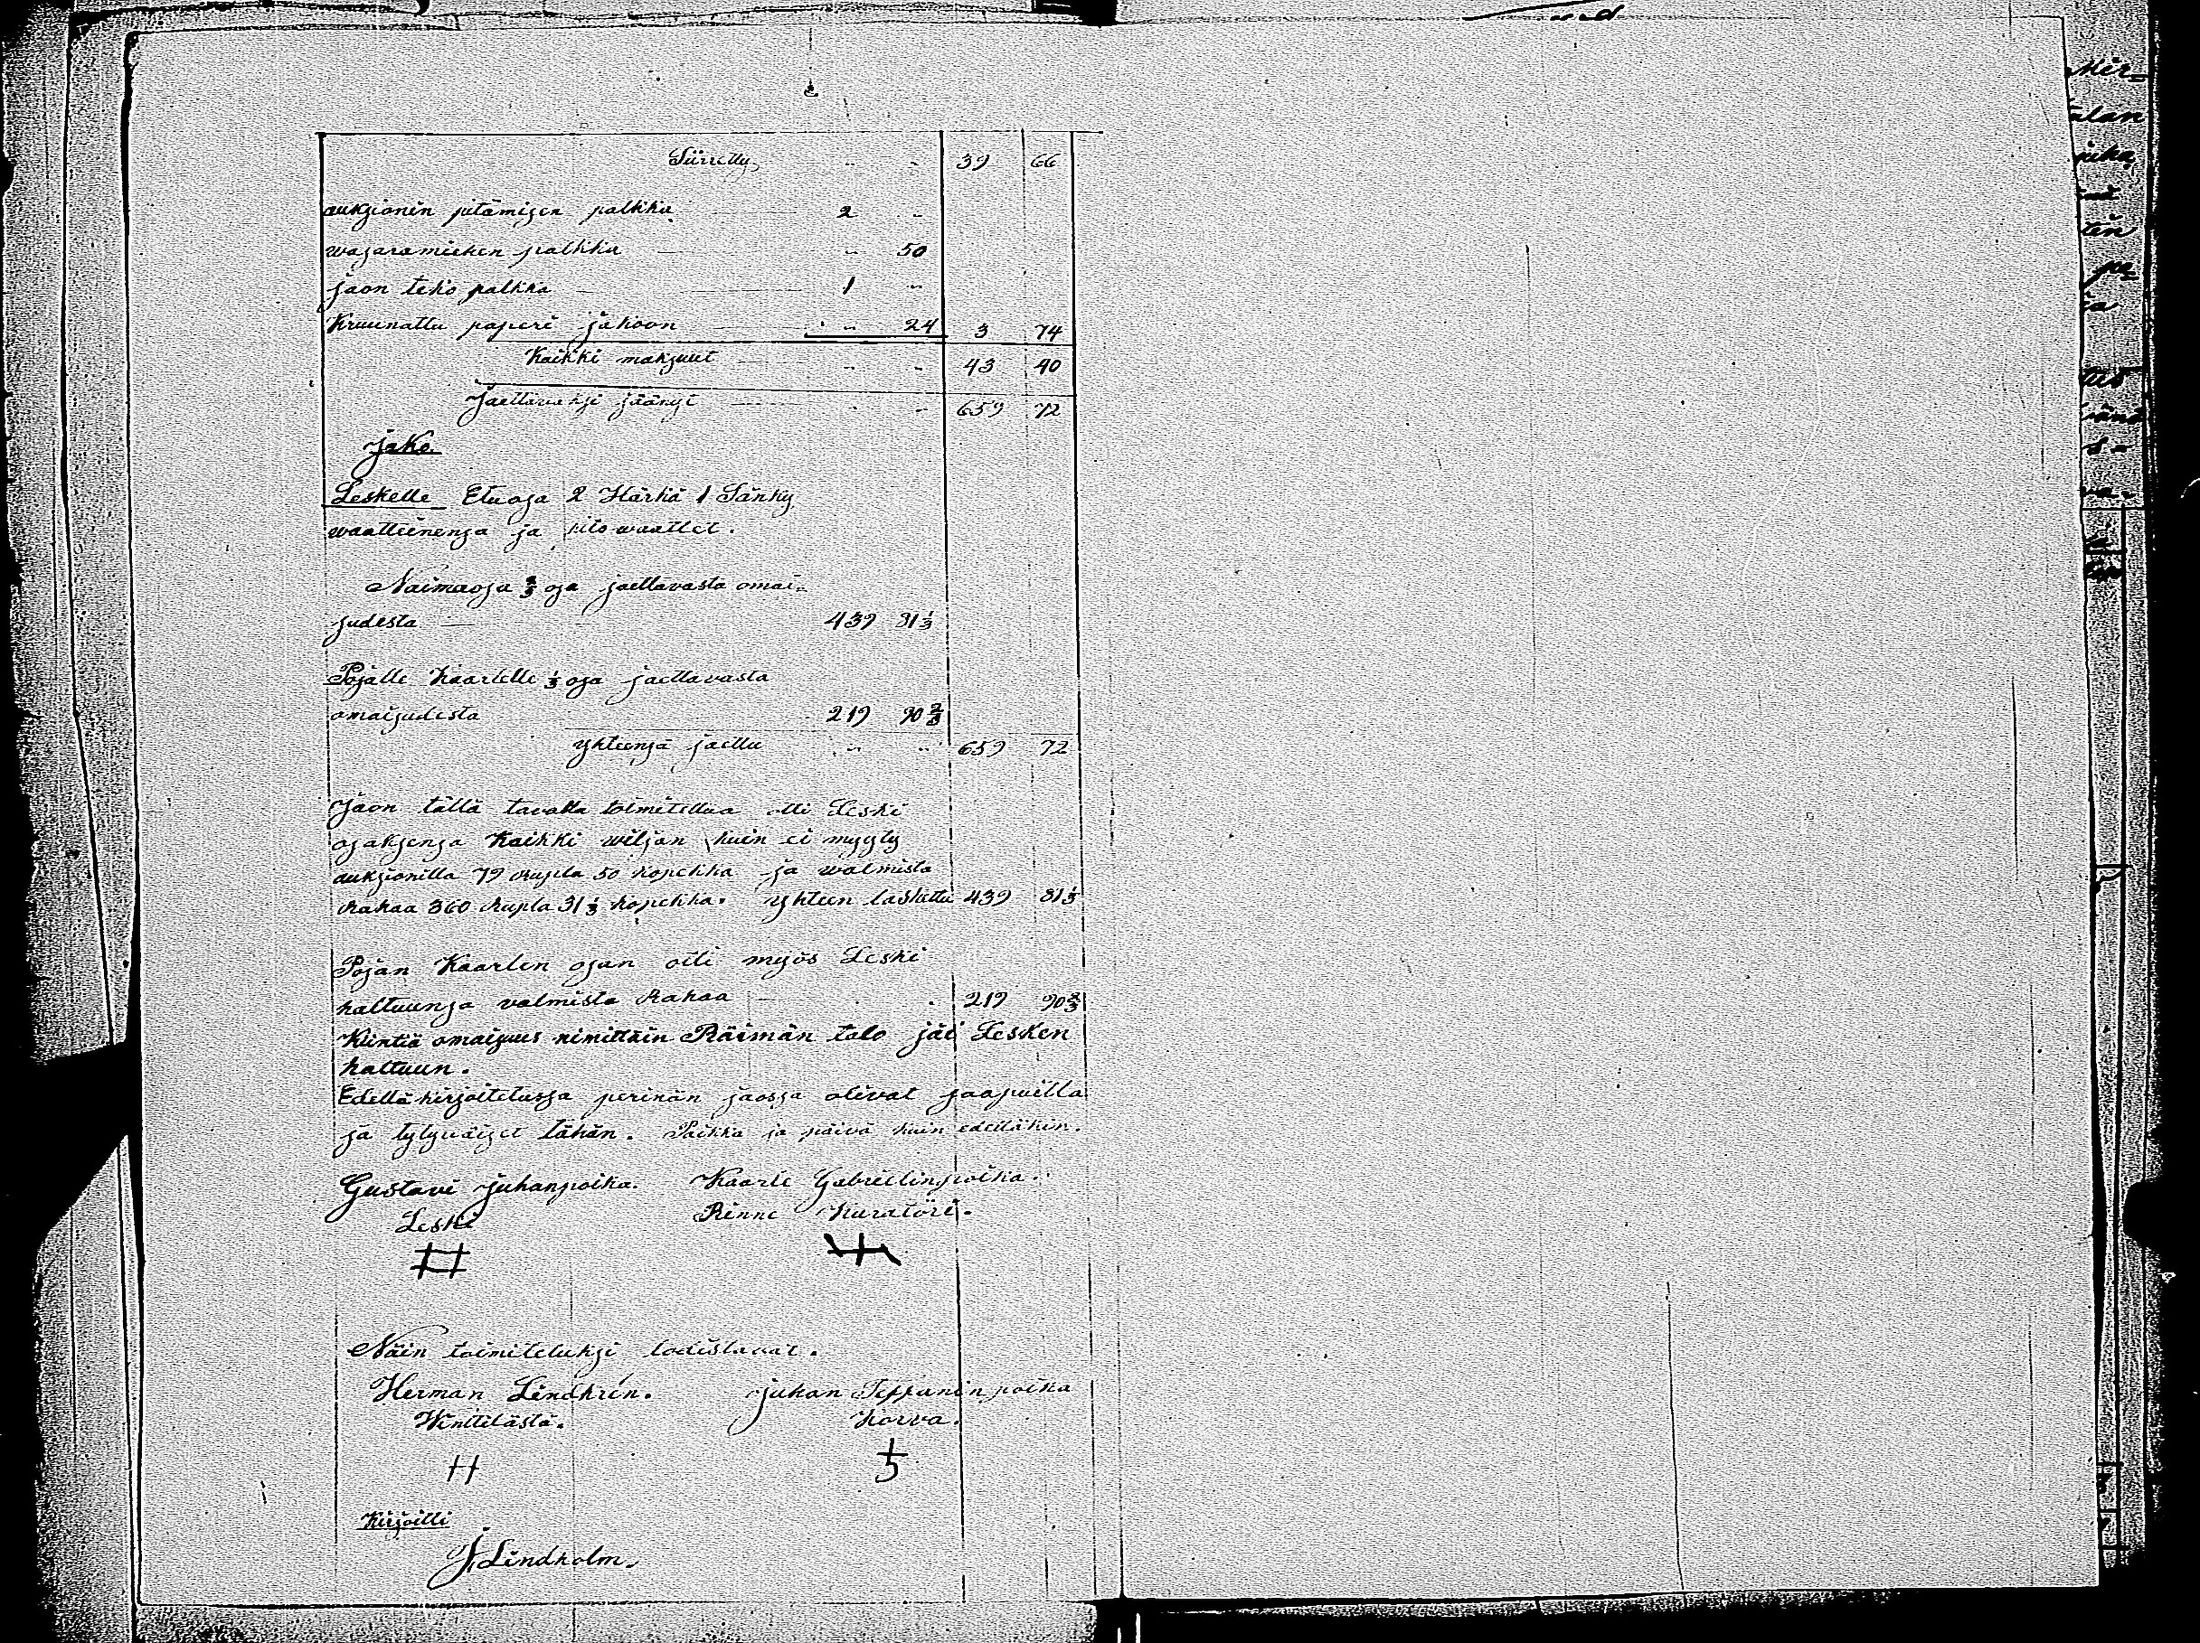 Siirretty " " 39 66
aukzionin pitämisen palkka 2 "
wasaramiehen palkka " 50
jaon teko palkka 1 "
Kruunattu paperi jakoon " 24 3 74
Kaikki maksuut " " 43 40
Jaettavaksi jäänyt " " 659 72
Jako.
Leskelle Etuosa 2 Härkä 1 Sänky
waatteinensa ja pito waattet.
Naimaosa 2/3 osa jaettavasta omai-
sudesta 439 81 1/3
Pojalle Kaarlelle 1/3 osa jaettavasta
omaisudesta 219 90 2/3
yhteensä jaettu " " 659 72
Jaon tällä tavalla toimitettua otti Leski
osaksensa Kaikki wiljan kuin ei myyty
aukzionilla 79 Rupla 50 kopekka ja walmista
Rahaa 360 Rupla 31 1/3 kopekka. yhteen laskettu 439 81 1/3
Pojan Kaarlen osan otti myös Leski
haltuunsa valmista Rahaa 219 90 2/3
Kiintiä omaisuus nimittäin Räimän talo jäi Lesken
haltuun.
Edellä kirjoitetussa perinän jaossa olivat saapuilla
ja tytyväiset tähän. Paikka ja päivä kuin edelläkin.
Gustavi Juhanpoika. Kaarle Gabrielinpoika.
Leski Rinne Kuratöri.
Näin toimitetuksi todistavat.
Herman Lindkrén. Juhan Teppanin poika
Winttilästä. Korva.
Kirjoitti
J. Lindholm.